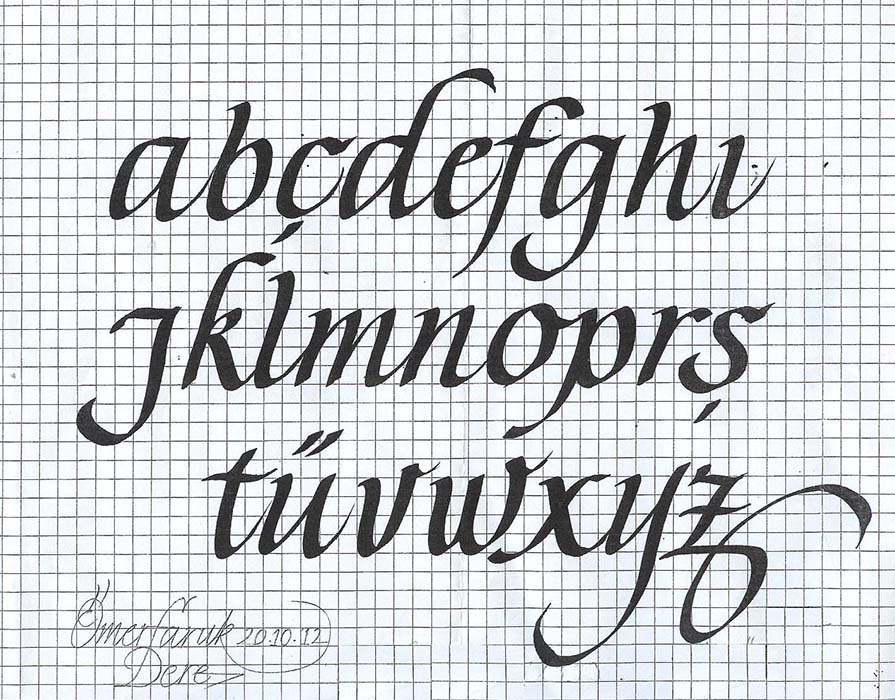 abçdefghı
jklmnoprş
tüvwxyz
Ömer faruk 20.10.12
Dere